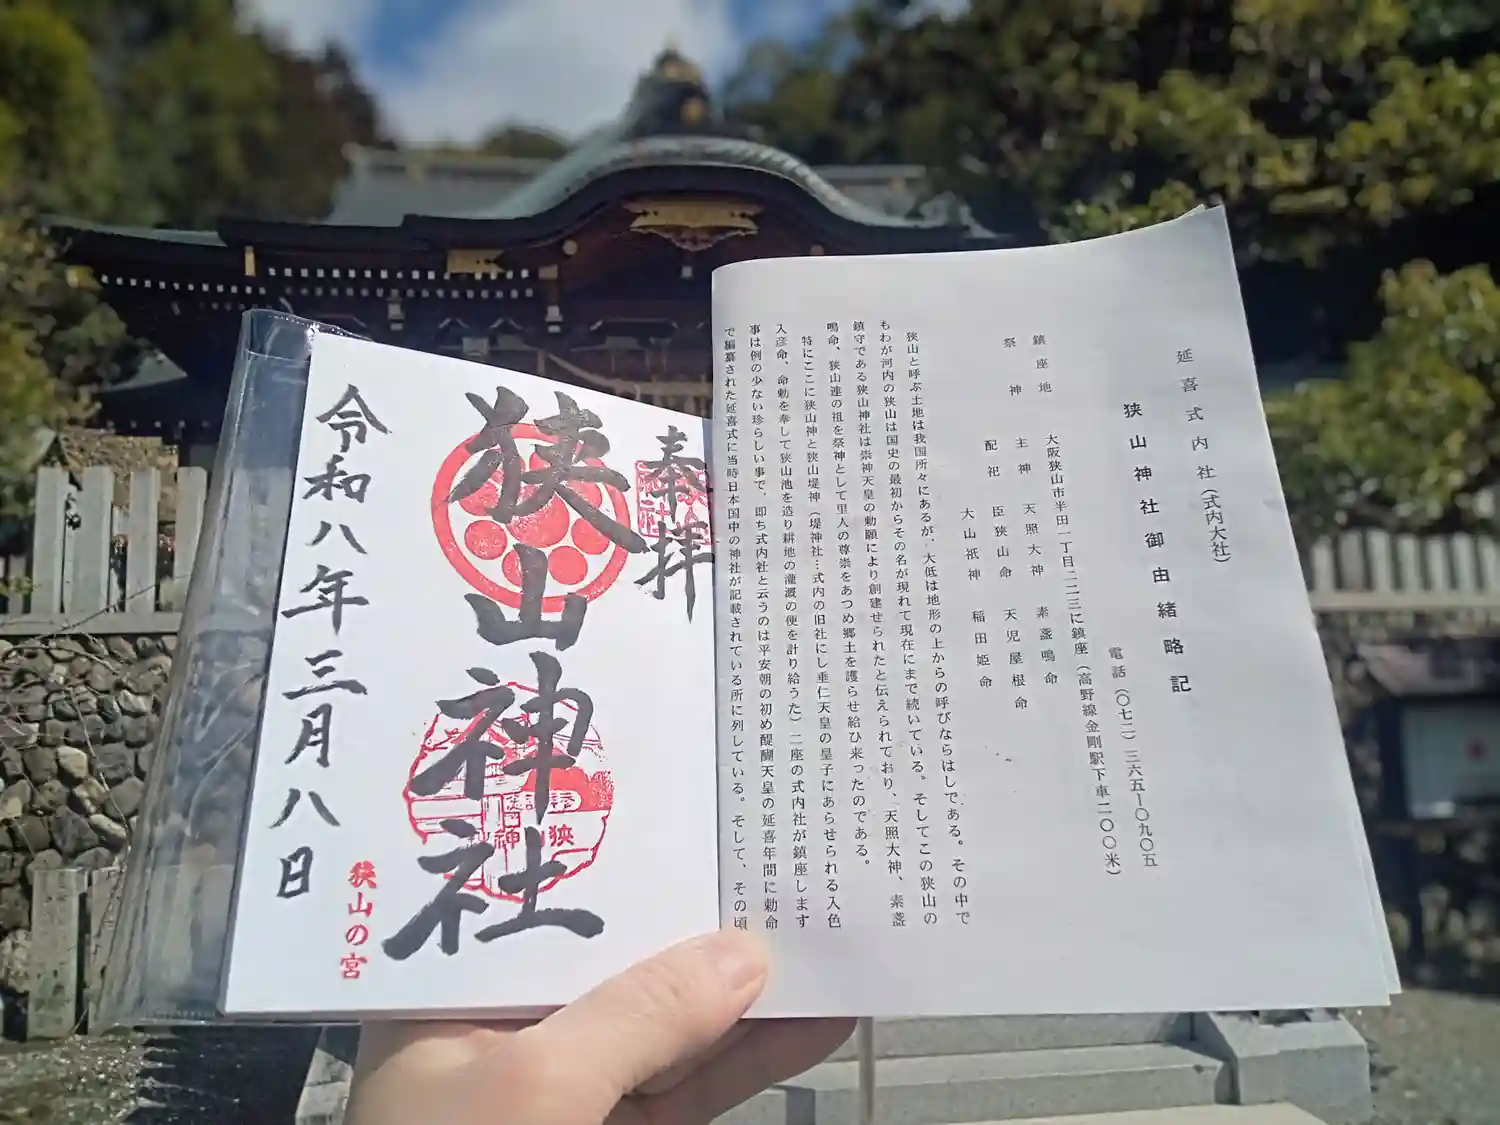 延喜式内社(式内大社)
狭山神社御由緒略記
電話(〇七二)三六五ー〇九〇五
鎮座地 大阪狭山市半田一丁目二二三に鎮座(高野線金剛駅下車二〇〇米)
祭神 主神 天照大神 素盞鳴命
配祀 臣狭山命 天児屋根命
大山祇神 稲田姫命
狭山と呼ぶ土地は我国所々にあるが、大低は地形の上からの呼びならはしである。その中で
もわが河内の狭山は国史の最初からその名が現れて現在にまで続いている。そしてこの狭山の
鎮守である狭山神社は崇神天皇の勅願により創建せられたと伝えられており、天照大神、素盞
鳴命、狭山連の祖を祭神として里人の尊崇をあつめ郷土を護らせ給ひ来ったのである。
特にここに狭山神と狭山堤神(堤神社…式内の旧社にし垂仁天皇の皇子にあらせられる入色
入彦命、命勅を奉して狭山池を造り耕地の灌漑の便を計り給うた)二座の式内社が鎮座します
事は例の少ない珍らしい事で、即ち式内社と云うのは平安朝の初め醍醐天皇の延喜年間に勅命
で編纂された延喜式に当時日本国中の神社が記載されている所に列している。そして、その頃
奉拝
狭山神社
狭山の宮
令和八年三月八日